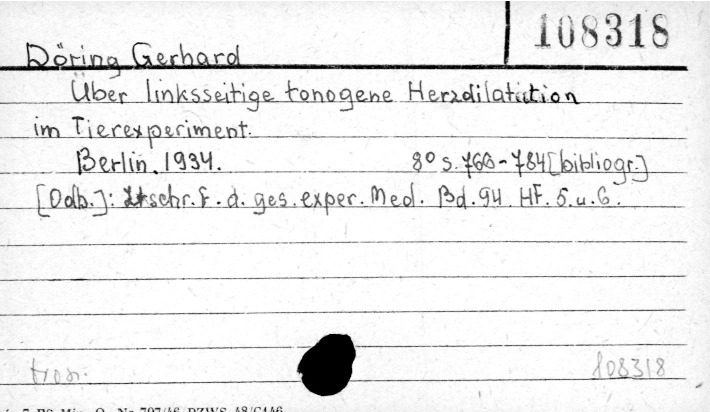 108318
Döring Gerhard
Über linksseitige tonogene Herzdilatation
im Tierexperiment.
Berlin. 1934. 8° s. 766-784 [bibliogr.]
[Odb.]: Ztschr. f. d. ges. exper. Med. Bd. 94 Hf. 5. u. 6.
108318